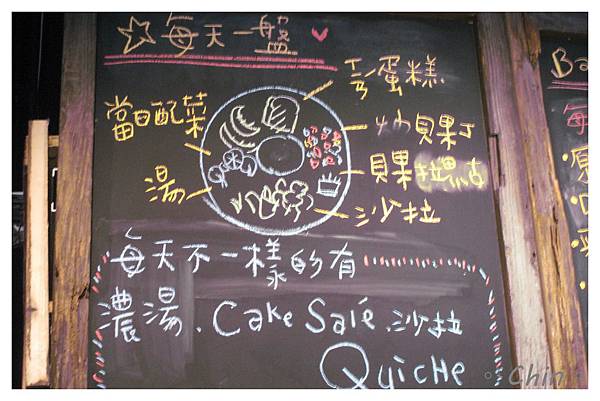 ☆每天一盤♥
鬆蛋糕
當日配菜
小貝果丁
貝果
湯
沙拉
每天不一樣的有
濃湯、Cake Salé、沙拉
Quiche
Ba
每
Chin